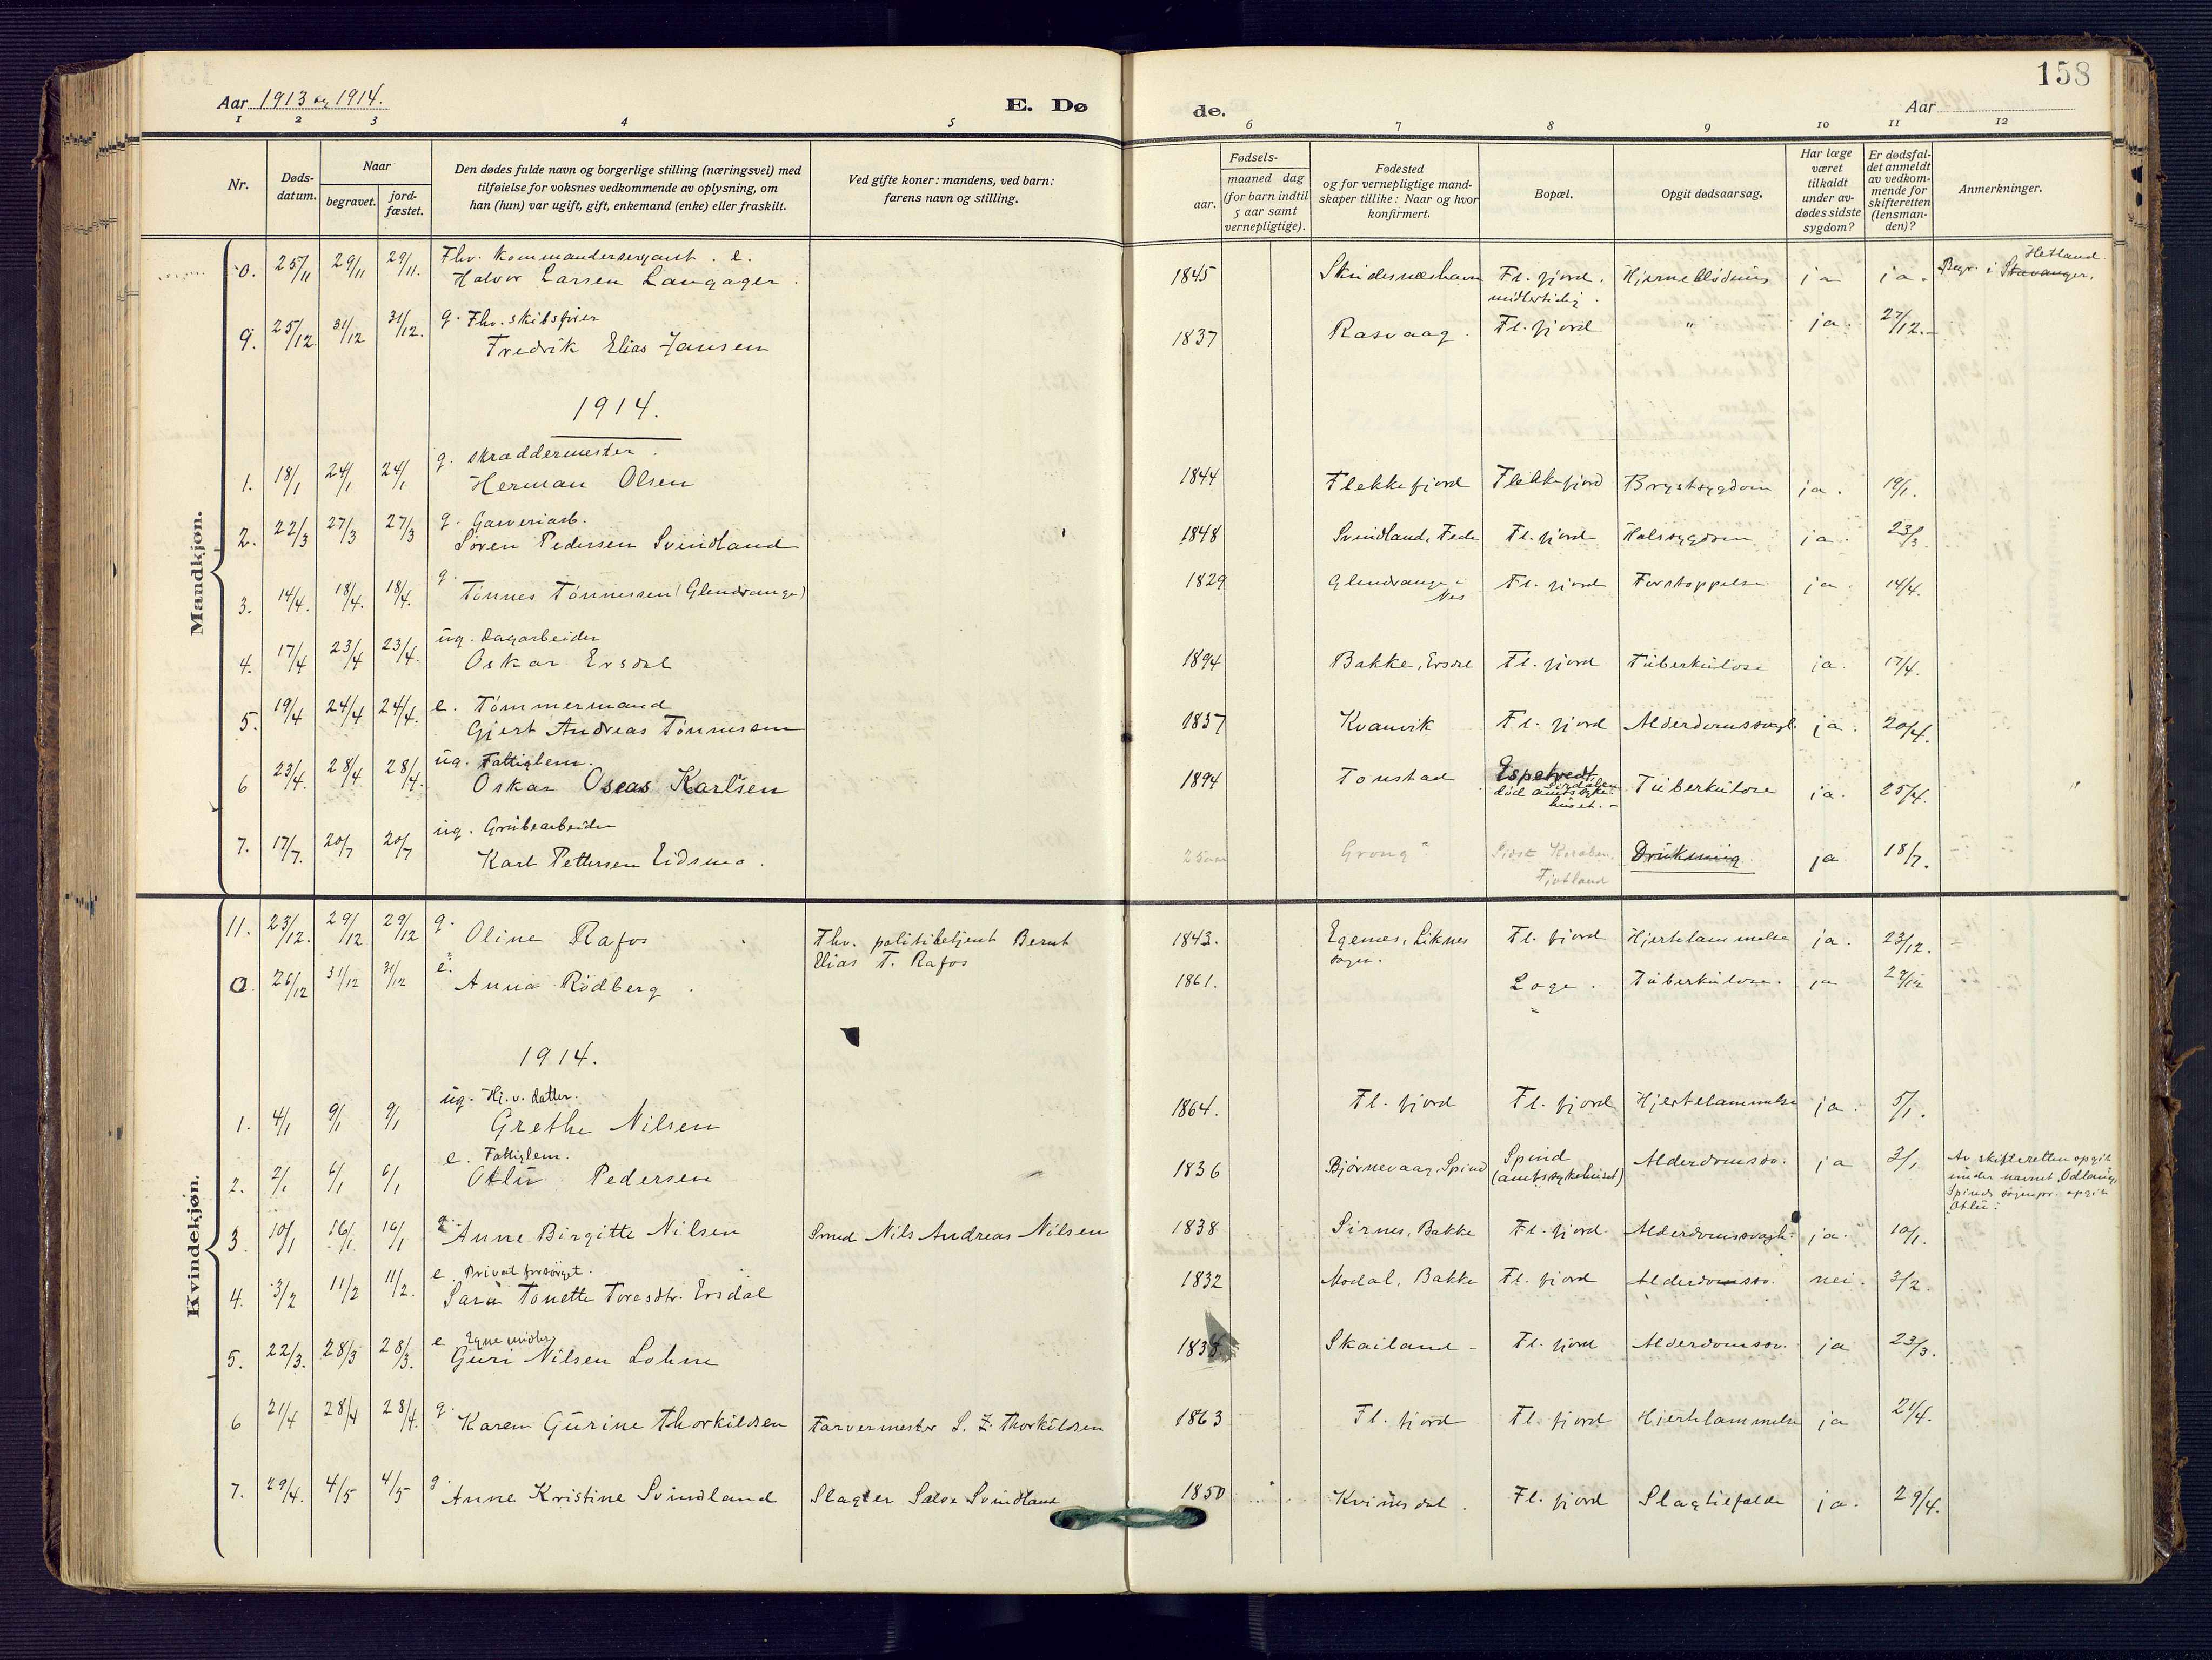 158
Aar 1913 og 1914.
E. Dø
de.
Aar
1 2 3 4 5 6 7 8 9 10 11 12
Nr.
Døds-
datum.
Naar
begravet.
jord-
fæstet.
Den dødes fulde navn og borgerlige stilling (næringsvei) med
tilføielse for voksnes vedkommende av oplysning, om
han (hun) var ugift, gift, enkemand (enke) eller fraskilt.
Ved gifte koner: mandens, ved barn:
farens navn og stilling.
Fødsels-
aar.
maaned dag
(for barn indtil
5 aar samt
vernepligtige).
Fødested
og for vernepligtige mand-
skaper tillike: Naar og hvor
konfirmert.
Bopæl.
Opgit dødsaarsag.
Har læge
været
tilkaldt
under av-
dødes sidste
sygdom?
Er dødsfal-
det anmeldt
av vedkom-
mende for
skifteretten
(lensman-
den)?
Anmerkninger.
Mandkjøn.
Fhv. Kommandersergiant. e. Hetland
0. 25/11 29/11 29/11. Halvor Larsen Langager. 1845 Skudesneshavn Fl. fjord. Hjerneblødning ja ja. Begr. i Stavanger.
midlertidig.
g. Fhv. skibsfører
9. 25/12. 31/12 31/12. Fredrik Elias Jansen 1837 Rasvaag. Fl. fjord " ja. 27/12.
1914.
g. skræddermester.
1. 18/1 24/1 24/1 Herman Olsen 1844 Flekkefjord Flekkefjord Brystsygdom ja. 19/1.
g. Garveriarb.
2. 22/3 27/3 27/3 Søren Pedersen Svindland 1848 Svindland, Feda Fl. fjord Halssygdom ja. 23/3.
3. 14/4. 18/4. 18/4. g. Tønnes Tønnessen (Glendrange) 1829 Glendrange i Fl. fjord Forstoppelse ja. 14/4.
Nes
ug. Dagarbeider
4. 17/4 23/4 23/4. Oskar Ersdal 1894 Bakke, Ersdal Fl. fjord Tuberkulose ja. 17/4.
e. Tømmermand
5. 19/4 24/4 24/4. Gjert Andreas Tønnessen 1837 Kvanvik Fl. fjord Alderdomssvagh. ja. 20/4.
ug. Fattiglem.
6 23/4. 28/4 28/4. Oskar Oseas Karlsen 1894 Tonstad Espetvedt, Tuberkulose ja. 25/4.
Sirdalen
død amtssyke-
huset.
ug. Grubearbeider
7. 17/7. 20/7 20/7 Karl Pettersen Eidsmo. 25 aar Grong Sidst Knaben, Drukning ja 18/7.
Fjotland
Kvindekjøn.
11. 23/12. 29/12 29/12 g. Oline Rafos Fhv. politibetjent Bernt 1843. Egenes, Liknes Fl. fjord Hjertelammelse ja. 23/12.
Elias T. Rafos sogn.
0. 26/12 31/12 31/12 e. Anna Rødberg. 1861. Loge. Tuberkulose. ja 29/12
1914.
ug. Hj. v. datter.
1. 4/1 9/1 9/1 Grethe Nilsen 1864. Fl. fjord Fl. fjord Hjertelammelse ja. 5/1.
e. Fattiglem.
2. 2/1 6/1 6/1 Otlu Pedersen 1836 Bjørnevaag, Spind Spind Alderdomssv. ja 3/1. Av skifteretten opgit
(amtssykehuset) under navnet Odlaug,
Spinds sognepr. opgir
"Otlu".
3. 10/1 16/1 16/1 g. Anne Birgitte Nilsen Smed Nils Andreas Nilsen 1838 Sirnes, Bakke Fl. fjord. Alderdomssvagh. ja. 10/1.
e. Privat forsørget.
4. 3/2 11/2 11/2. Sara Tonette Toresdtr. Ersdal 1832 Modal, Bakke Fl. fjord Alderdomssv. nei. 3/2.
e Egne midler
5. 22/3. 28/3 28/3. Guri Nilsen Lohne 1838 Skailand Fl. fjord Alderdomssv. ja 23/3.
6 21/4 28/4 28/4. g. Karen Gurine Thorkildsen Farvermester S. Z. Thorkildsen 1863 Fl. fjord Fl. fjord Hjertelammelse ja 21/4.
7. 29/4. 4/5 4/5 g. Anne Kristine Svindland Slagter Salve Svindland 1850 Kvinesdal. Fl. fjord Slagtilfælde ja. 29/4.